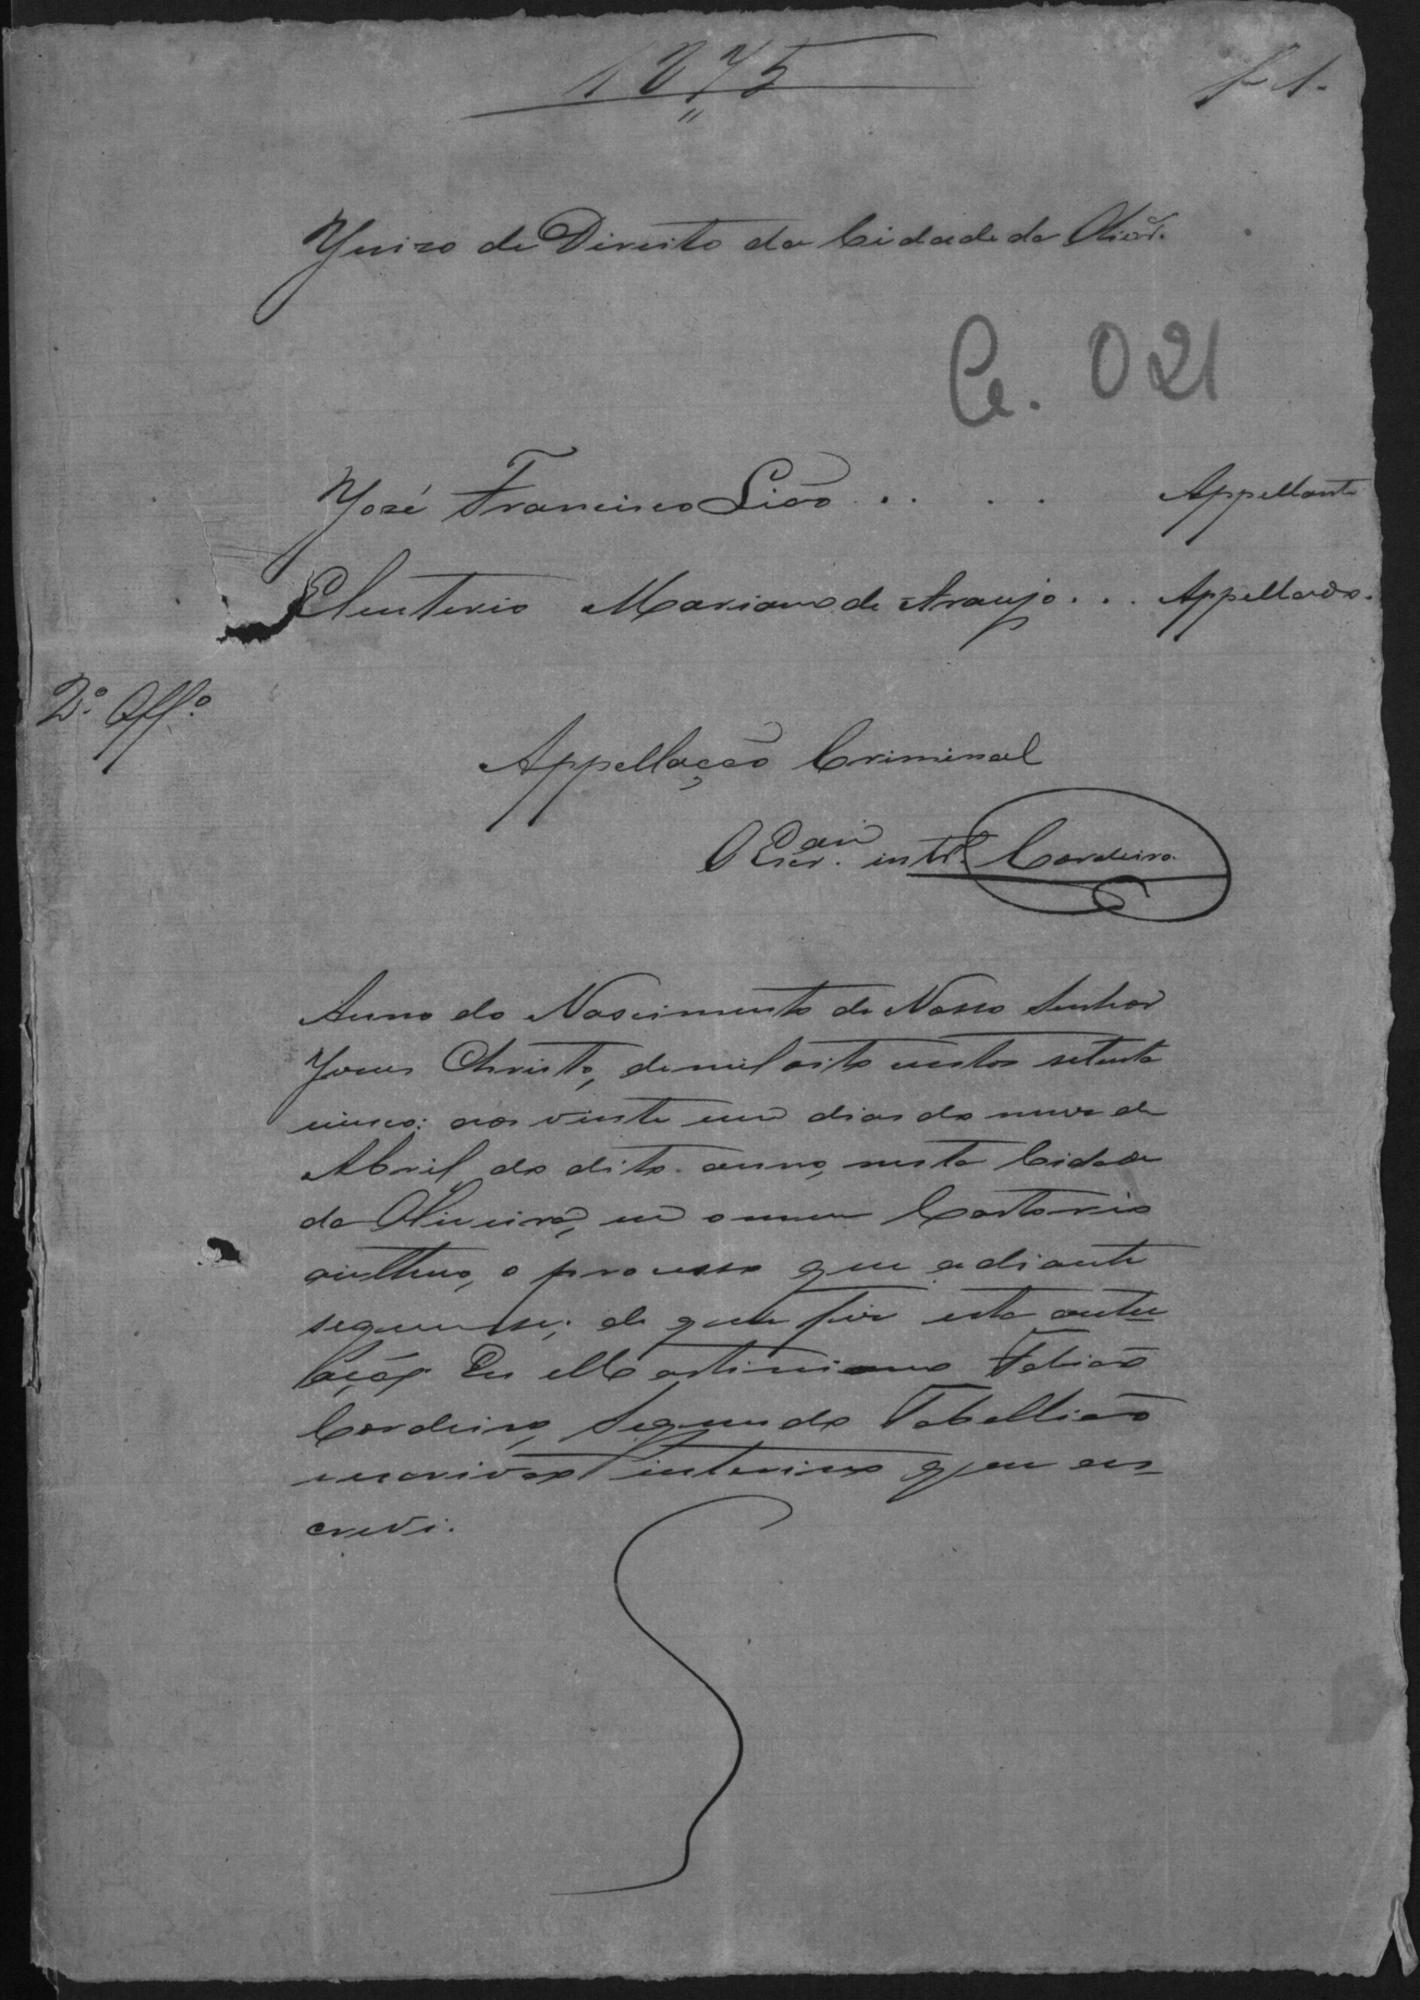 1875
f 1.
Juizo de Direito da Cidade da Olivrª.
Ce. 021
José Francisco Lião . . . . Appellante
Eleuterio Mariano de Araujo . . . Appellado.
2º. Offº.
Appellação Criminal
O Escr.am intº. Cordeiro
Anno do Nascimento de Nosso Senhor
Jesus Christo, de mil oito centos setenta
cinco: aos vinte um dias do mez de
Abril do dito anno, nesta Cidade
da Oliveira, em o meu Cartorio
autuo, o processo que adiante
segue se; de que fiz esta autu
ação Eu Martiniano
Cordeiro, Segundo Tabellião
escrivão interino que es-
crevi.